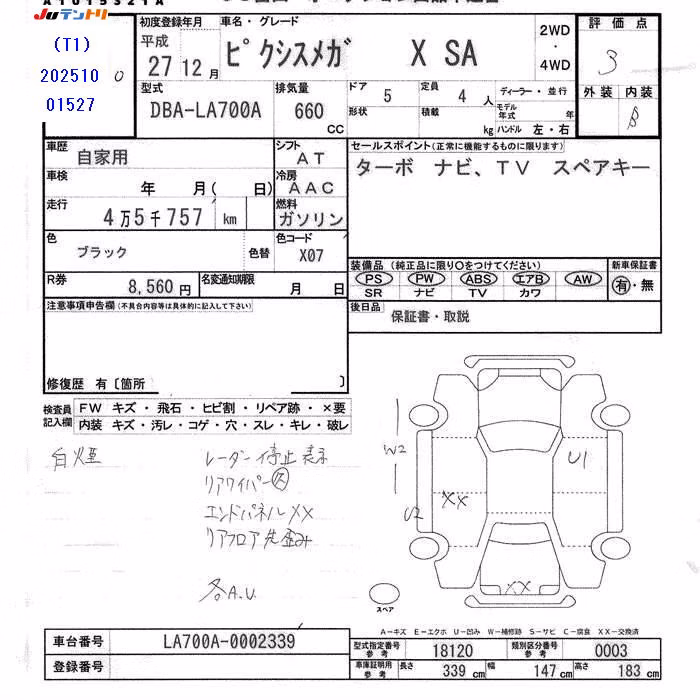 JUテントリ
(T1)
202510 0
01527
初度登録年月 車名・グレード
平成 27 12 月 ピクシスメガ X SA
2WD・4WD
評価点
3
外装 内装
B
型式 DBA-LA700A
排気量 660 CC
ドア 5 定員 4 人
形状 積載 kg
ディーラー・並行
モデル年式 年
ハンドル 左・右
車歴 自家用
シフト AT
車検 年 月( 日)
冷房 AAC
走行 4万5千757 km
燃料 ガソリン
色 ブラック 色替
色コード X07
R券 8,560 円
名変通知期限 月 日
セールスポイント(正常に機能するものに限ります)
ターボ ナビ、TV スペアキー
装備品 (純正品に限り○をつけてください)
PS PW ABS エアB AW
SR ナビ TV カワ
新車保証書
有・無
後日品 保証書・取説
注意事項申告欄(不具合内容等は具体的に記入して下さい)
修復歴 有〔箇所 〕
検査員記入欄
FW キズ・飛石・ヒビ割・リペア跡・×要
内装 キズ・汚レ・コゲ・穴・スレ・キレ・破レ
白煙 レーダー停止表示
リアワイパー欠
エンドパネルXX
リアフロア先歪み
各A.U.
W2
U2
XX
U1
XX
スペア
A-キズ E-エクボ U-凹み W-補修跡 S-サビ C-腐食 XX-交換済
車台番号 LA700A-0002339
登録番号
型式指定番号 参考 18120
類別区分番号 参考 0003
車庫証明用 参考 長さ 339 cm 幅 147 cm 高さ 183 cm